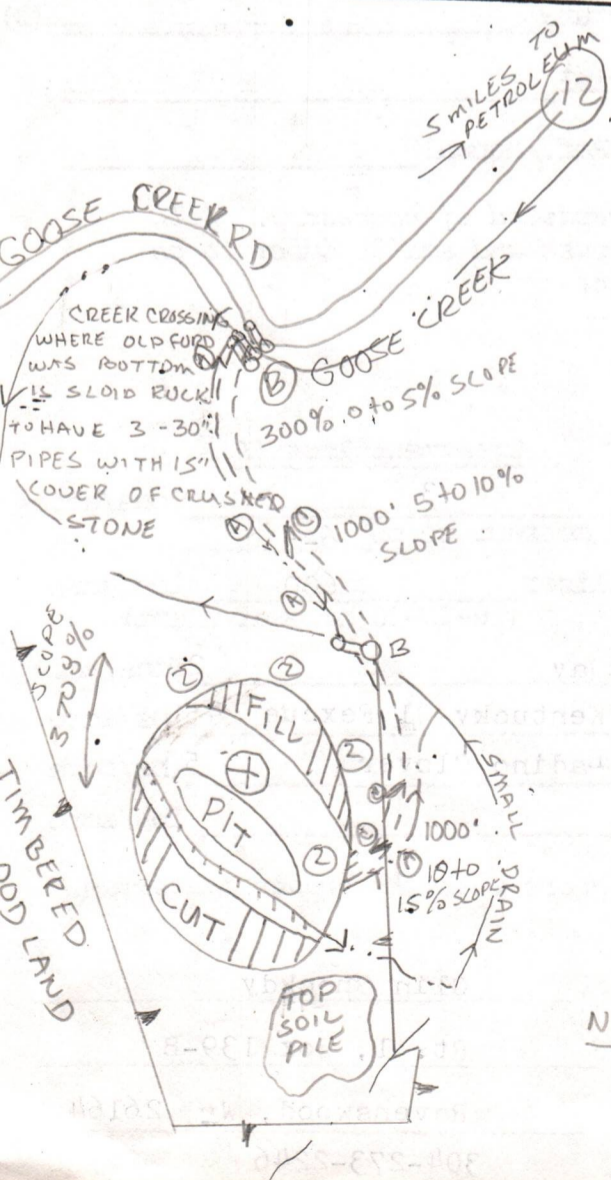 5 MILES TO
PETROLEUM
12
GOOSE CREEK RD
GOOSE CREEK
CREEK CROSSING
WHERE OLD FORD
WAS BOTTOM
IS SLOID ROCK
TO HAVE 3-30"
PIPES WITH 15"
COVER OF CRUSHED
STONE
B
300% 0 to 5% SLOPE
1000' 5 to 10%
SLOPE
A
B
SLOPE
3 TO 8%
2
2
FILL
2
PIT
2
CUT
1000'
10 to
15% SLOPE
SMALL DRAIN
TIMBERED
WOOD LAND
TOP
SOIL
PILE
N